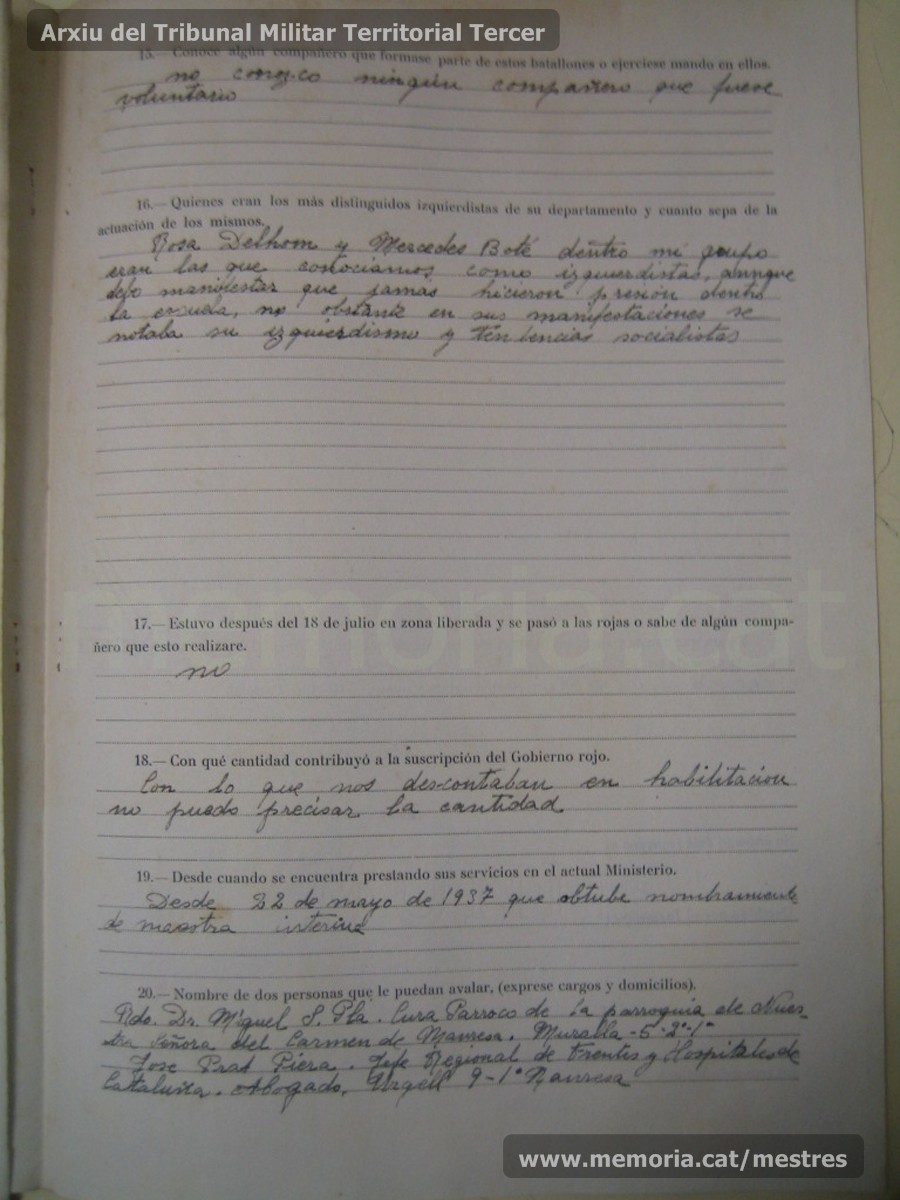 Arxiu del Tribunal Militar Territorial Tercer
15.— Conoce algún compañero que formase parte de estos batallones o ejerciese mando en ellos.
no conozco ningún compañero que fuese
voluntario
16.— Quienes eran los más distinguidos izquierdistas de su departamento y cuanto sepa de la
actuación de los mismos.
Rosa Delhom y Mercedes Boté dentro mi grupo
eran las que conociamos como izquierdistas, aunque
debo manifestar que jamas hicieron presión dentro
la escuela, no obstante en sus manifestaciones se
notaba su izquierdismo y tendencias socialistas
17.— Estuvo después del 18 de julio en zona liberada y se pasó a las rojas o sabe de algún compa-
ñero que esto realizare.
no
18.— Con qué cantidad contribuyó a la suscripción del Gobierno rojo.
Con lo que nos descontaban en habilitación
no puedo precisar la cantidad
19.— Desde cuando se encuentra prestando sus servicios en el actual Ministerio.
Desde 22 de mayo de 1937 que obtube nombramiento
de maestra interina
20.— Nombre de dos personas que le puedan avalar, (exprese cargos y domicilios).
Rdo. Dr. Miguel S. Pla. Cura Parroco de la parroquia de Nues-
tra Señora del Carmen de Manresa. Muralla-5-2º-1ª
Jose Prat Piera. Jefe Regional de Frentes y Hospitales de
Cataluña. Abogado. Urgell 9-1º Manresa
memoria.cat
www.memoria.cat/mestres